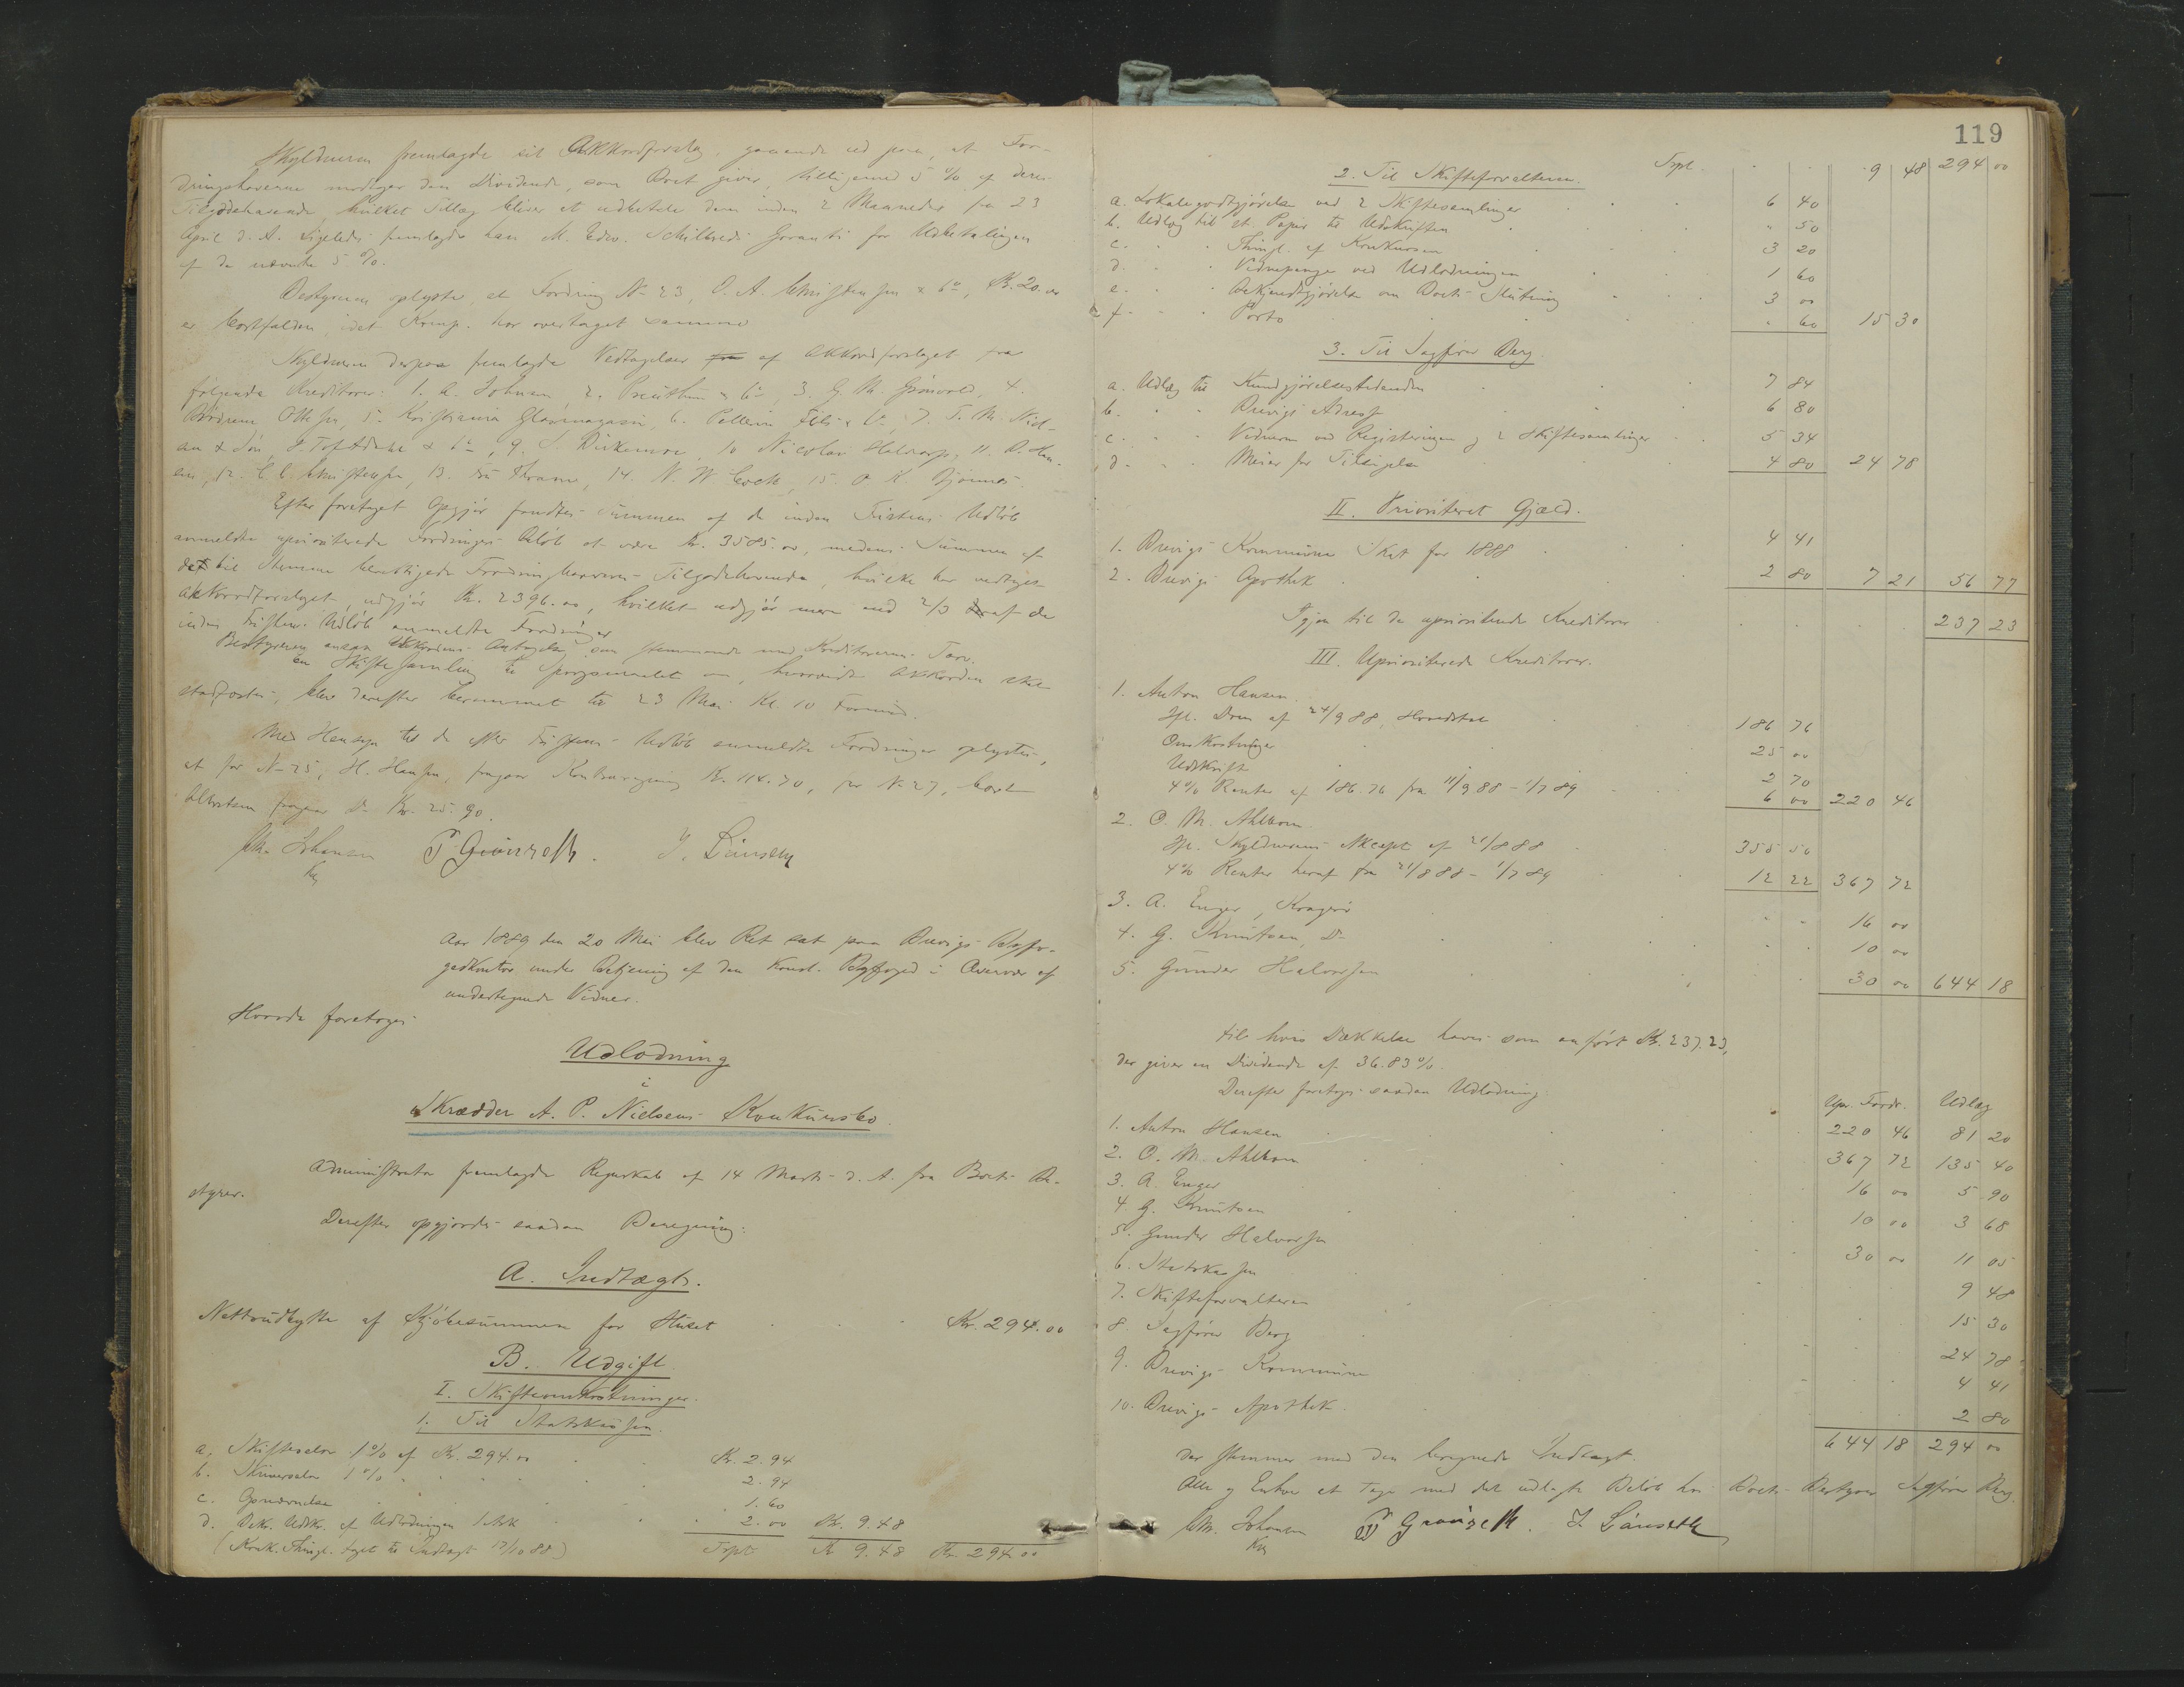 Skyldneren fremlagde sit Akkordforslag, gaaende ud paa, at For-
dringshaverne modtager den Dividende, som Boet giver, tilligemed 5 % af deres
Tilgodehavende, hvilket Tillæg bliver at udbetale dem inden 2 Maaneder fra 23
April d. A. Ligeledes fremlagde han M. Edv. Schilbreds Garanti for Udbetalingen
af de nævnte 5 %.
Bestyreren oplyste, at Fordring No 23, O. A. Christensen & Co, Kr. 20.00
er bortfalden, idet Komp. har overtaget samme
Skyldneren derpaa fremlagde Vedtagelser af Akkordforslaget fra
følgende Kreditorer: 1. A. Johnsen, 2. & Co, 3. G. M. Grönvold, 4.
Brödrene Ottesen, 5. Kristiania Glasmagasin, 6. Pellerin Fils & Co, 7. T. M. Niel-
sen & Sön, 8. & Co, 9. S. , 10 Nicolai , 11. A. Han-
sen, 12. C. C. Christensen, 13. Thrane, 14. N. W. Coch, 15. O. K. Bjönnes.
Efter foretaget Opgjör fandtes Summen af de inden Fristens Udlöb
anmeldte uprioriterede Fordringers Belöb at være Kr. 3585.00, medens Summen af
det til Stemme berettigede Fordringhaveres Tilgodehavende, hvilke har vedtaget
Akkordforslaget udgjör Kr. 2396.00, hvilket udgjör mere end 2/3 af de
inden Fristens Udlöb anmeldte Fordringer
Bestyreren ansaa Akkordens Antagelse som stemmende med Kreditorernes Tarv.
En Skiftesamling til Spørgsmaalet om, hvorvidt Akkorden skal
stadfæstes, blev derefter berammet til 23 Mai Kl. 10 Formid.
Med Hensyn til de efter Fristens Udlöb anmeldte Fordringer oplystes,
at for No 25, H. Hansen, fragaar Kontraregning Kr. 114.70, for No 27,
Albertsen fragaar Do Kr. 25.90.
Chr. Johansen T. Grönseth. J. Lönseth
Kst
Aar 1889 den 20 Mai blev Ret sat paa Brevigs Byfo-
gedkontor under Betjening af den Konst. Byfoged i Overvær af
undertegnede Vidner.
Hvorda foretoges
Udlodning
i
Skrædder A. P. Nielsens Konkursbo.
Administrator fremlagde Regnskab af 14 Marts d. A. fra Boets Be-
styrer.
Derefter opgjordes saadan Beregning:
A. Indtægt.
Nettoudbytte af Kjöbesummen for Huset Kr. 294.00
B. Udgift
I. Skifteomkostninger.
1. Til Statskassen.
a. Skifteselov 1 % af Kr. 294.00 Kr. 2.94
b. 1 % 2.94
c. Opnævnelse 1.60
d. Bekr. Udskr. af Udlodningen 1 Ark 2.00 Kr. 9.48
(Konk. Thingl. taget til Indtægt 17/10 88) Trpt. Kr 9.48 Kr. 294.00
119
Trpt. 9 48 294 00
2. Til Skifteforvalteren.
a. Lokalegodtgjörelse ved 2 Skiftesamlinger 6 40
b. Udlæg til st. Papir til Udskriften " 50
c. " " Thingl. af Konkursen 3 20
d. " " Vidnepenge ved Udlodningen 1 60
e. " " Bekjendtgjörelse om Boets Slutning 3 00
f. " " Porto " 60 15 30
3. Til Sagförer Berg.
a. Udlæg til Kundgjörelsestidenden 7 84
b. " " Brevigs Adresse 6 80
c. " " Vidnerne ved Registeringen og 2 Skiftesamlinger 5 34
d. " " Meier for Tilsigelse 4 80 24 78
II. Prioriteret Gjæld.
1. Brevigs Kommune Skat for 1888 4 41
2. Brevigs Apothek 2 80 7 21 56 77
Igjen til de uprioriterede Kreditorer 237 23
III. Uprioriterede Kreditorer.
1. Anton Hansen
Ifl. Dom af 24/9 88, Hovedstol 186 76
Omkostninger 25 00
Udskrift 2 70
4 % Renter af 186.76 fra 11/9 88 - 1/7 89 6 00 220 46
2. O. M. Ahlbom
Ifl. Skyldnerens Akcept af 21/8 88 355 50
4 % Renter heraf fra 21/8 88 - 1/7 89 12 22 367 72
3. A. Enger, Kragerö " " 16 00
4. G. Knutsen, Do " " 10 00
5. Gunder Halvorsen 30 00 644 18
til hvis Dækkelse haves som anfört Kr. 237.23,
der giver en Dividende af 36.83 %.
Derefter foretoges saadan Udlodning
Upr. Fordr. Udlæg
1. Anton Hansen 220 46 81 20
2. O. M. Ahlbom 367 72 135 40
3. A. Enger 16 00 5 90
4. G. Knutsen 10 00 3 68
5. Gunder Halvorsen 30 00 11 05
6. Statskassen 9 48
7. Skifteforvalteren 15 30
8. Sagförer Berg 24 78
9. Brevigs Kommune 4 41
10. Brevigs Apothek 2 80
644 18 294 00
der stemmer med den beregnede Indtægt.
Alle og Enhver at tage med det udlagte Belöb hos Boets Bestyrer Sagförer Berg.
Chr. Johansen T Grönseth. J. Lönseth
Kst